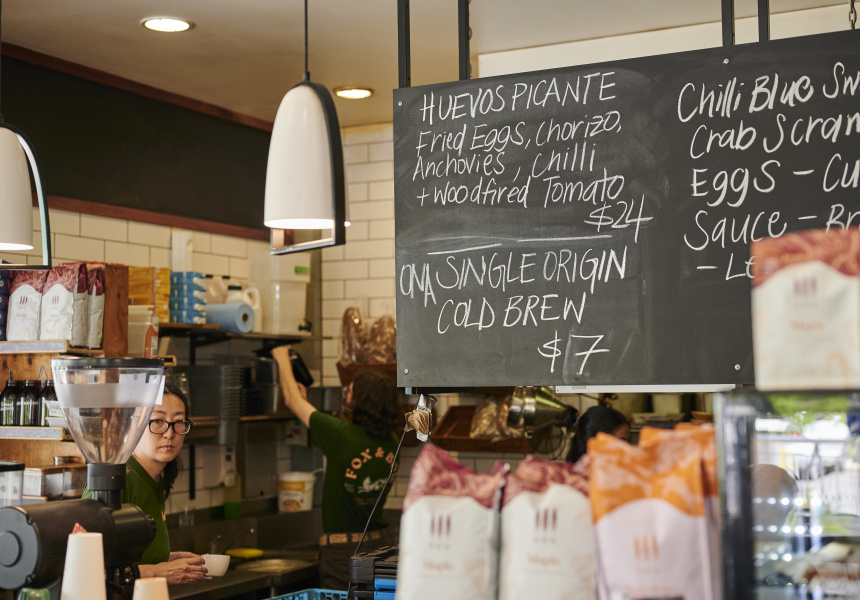 HUEVOS PICANTE
Fried Eggs, Chorizo,
Anchovies, Chilli
+ Woodfired Tomato
$24
ONA SINGLE ORIGIN
COLD BREW
$7
Chilli Blue
Crab
Eggs -
Sauce -
-
FOX &